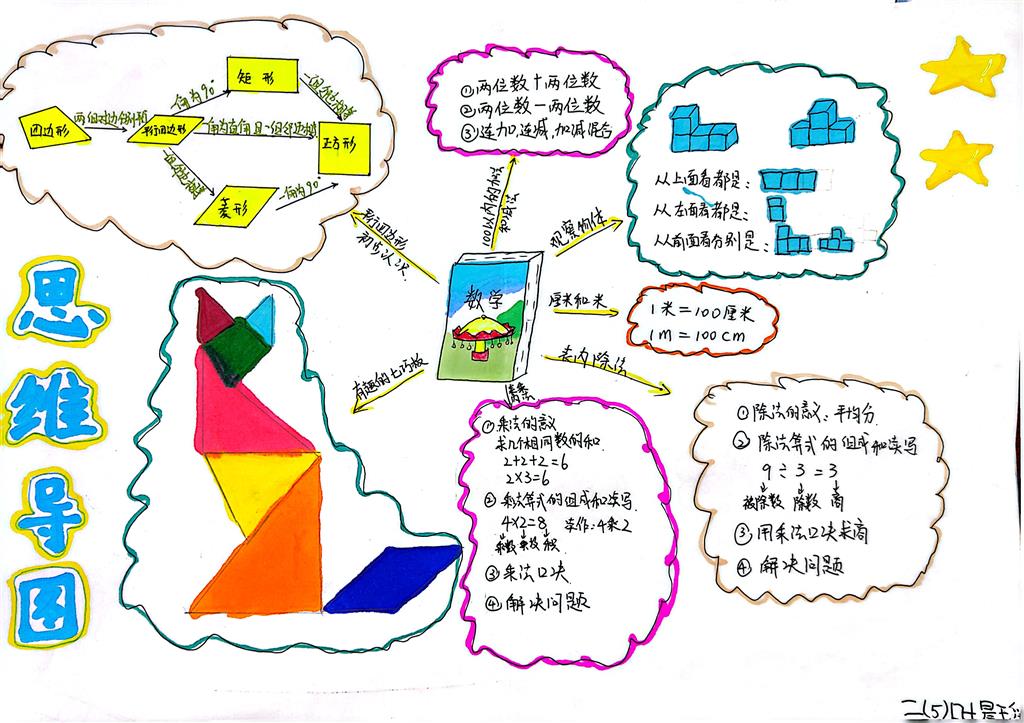 思维导图
数学
平行四边形
初步认识
四边形
两组对边分别平行
平行四边形
一角为90°
矩形
一组邻边相等
一角为直角且一组邻边相等
正方形
一组邻边相等
菱形
一角为90°
100以内的加减
①两位数+两位数
②两位数-两位数
③连加,连减,加减混合
观察物体
从上面看都是:
从左面看都是:
从前面看分别是:
厘米和米
1米=100厘米
1m=100cm
表内除法
①除法的意义:平均分
②除法算式的组成和读写
9÷3=3
被除数 除数 商
③用乘法口决求商
④解决问题
有趣的七巧板
①乘法的意义
求几个相同数的和
2+2+2=6
2×3=6
②乘法算式的组成和读写
4×2=8 读作:4乘2
乘数 乘数 积
③乘法口决
④解决问题
二(5)